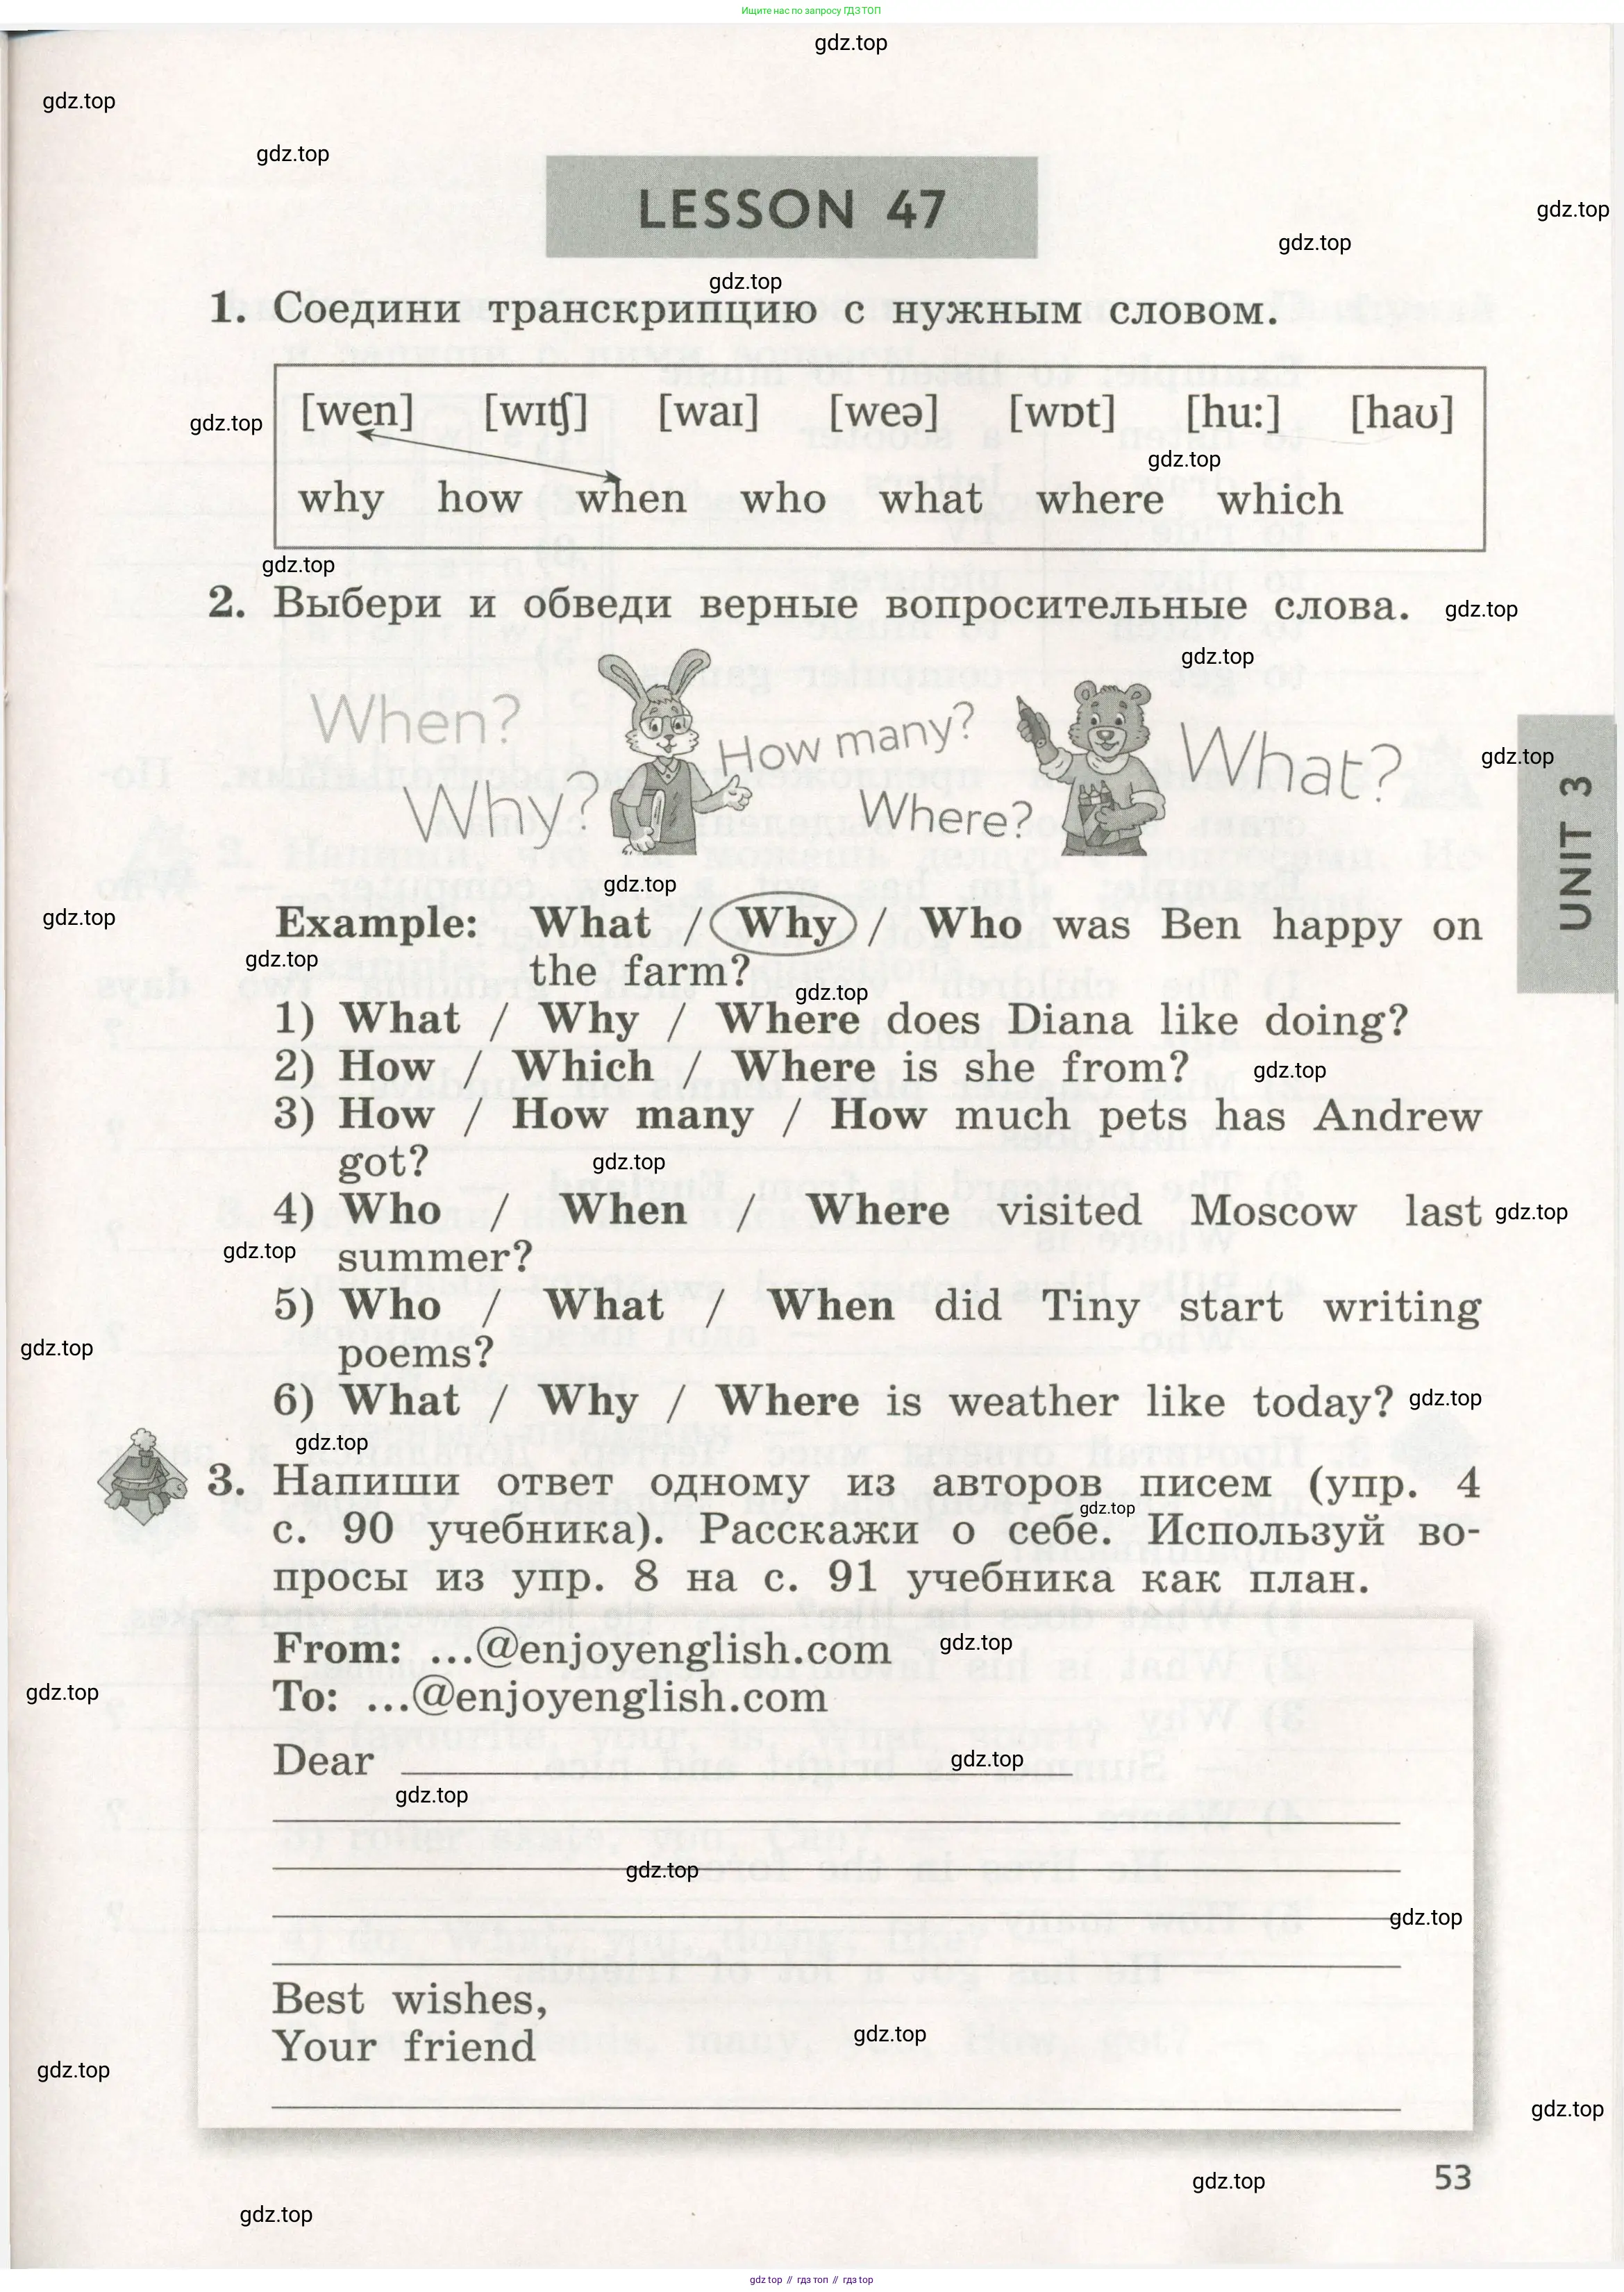 Ищите нас по запросу ГДЗ ТОП
gdz.top
gdz.top
gdz.top
LESSON 47
gdz.top
gdz.top
gdz.top
1. Соедини транскрипцию с нужным словом.
[wen] [wɪʧ] [waɪ] [weə] [wɒt] [hu:] [haʊ]
gdz.top
gdz.top
why how when who what where which
gdz.top
2. Выбери и обведи верные вопросительные слова.
gdz.top
gdz.top
When?
Why?
How many?
Where?
What?
gdz.top
UNIT 3
gdz.top
gdz.top
Example: What / Why / Who was Ben happy on
the farm?
gdz.top
gdz.top
1) What / Why / Where does Diana like doing?
2) How / Which / Where is she from?
gdz.top
3) How / How many / How much pets has Andrew
got?
gdz.top
4) Who / When / Where visited Moscow last
gdz.top
summer?
gdz.top
5) Who / What / When did Tiny start writing
poems?
gdz.top
6) What / Why / Where is weather like today?
gdz.top
gdz.top
3. Напиши ответ одному из авторов писем (упр. 4
gdz.top
с. 90 учебника). Расскажи о себе. Используй во-
просы из упр. 8 на с. 91 учебника как план.
From: ...@enjoyenglish.com
gdz.top
To: ...@enjoyenglish.com
gdz.top
Dear
gdz.top
gdz.top
gdz.top
gdz.top
Best wishes,
Your friend
gdz.top
gdz.top
gdz.top
53
gdz.top
gdz.top
gdz.top // гдз топ // гдз top